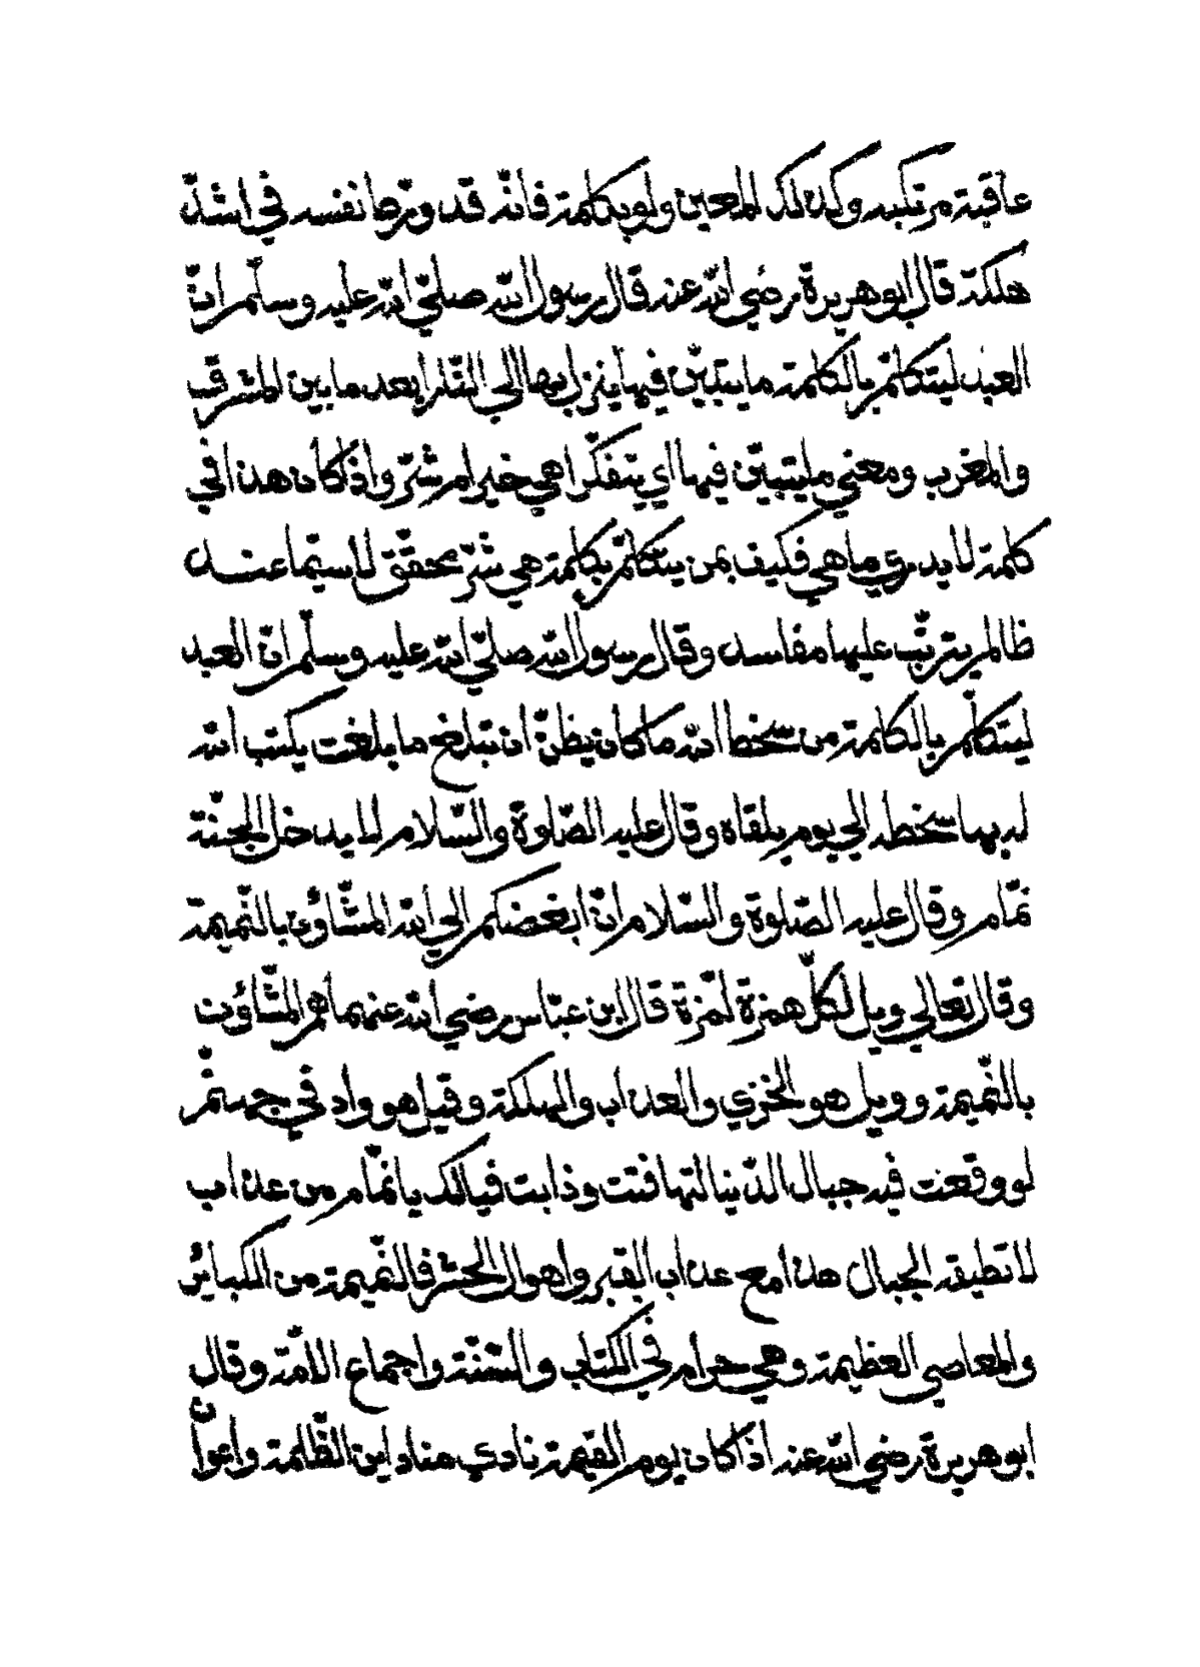 عاقبة مرتكبه وكذلك المعين ولو بكلمة فانّه قد ورّط نفسه في اشدّ
هلكة قال ابو هريرة رضي الله عنه قال رسول الله صلّي الله عليه وسلّم انّ
العبد ليتكلّم بالكلمة ما يتبيّن فيها ينزل بها الي النّار ابعد ما بين المشرق
والمغرب ومعني ما يتبيّن فيها اي يتفكّر اهي خير ام شرّ واذا كان هذا في
كلمة لا يدري ما هي فكيف بمن يتكلّم بكلمة هي شرّ محقّق لا سيّما عند
ظالم يترتّب عليها مفاسد وقال رسول الله صلّي الله عليه وسلّم انّ العبد
ليتكلّم بالكلمة من سخط الله ما كان يظنّ ان تبلغ ما بلغت يكتب الله
له بها سخطه الي يوم يلقاه وقال عليه الصّلوة والسّلام لا يدخل الجنّة
نمّام وقال عليه الصّلوة والسّلام انّ ابغضكم الي الله المشّاؤن بالنّميمة
وقال تعالي ويل لكلّ همزة لمزة قال ابن عبّاس رضي الله عنهما هم المشّاؤن
بالنّميمة وويل هو الخزي والعذاب والهلكة وقيل هو واد في جهنّم
لو وقعت فيه جبال الدّنيا لتهافتت وذابت فيالك يا نمّام من عذاب
لا تطيقه الجبال هذا مع عذاب القبر واهوال الحشر فالنّميمة من الكبائر
والمعاصي العظيمة وهي حرام في الكتاب والسّنّة واجماع الامّة وقال
ابو هريرة رضي الله عنه اذا كان يوم القيمة نادي مناد اين الظّلمة واعوان